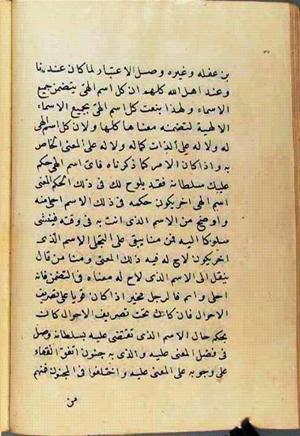 بن عفله وغيره وصل الاعتبار لما كان عندنا
وعند اهل الله كلهم ان كل اسم الهي يتضمن جميع
الاسماء ولهذا ينعت كل اسم الهي بجميع الاسماء
الالهية لتضمنه معناها كلها ولان كل اسم الهي
له دلالة على الذات كما له دلالة على المعنى الخاص
به واذا كان الامر كما ذكرناه فاي اسم الهي حكم
عليك سلطانه فقد يلوح لك في ذلك الحكم المعنى
اسم الهي اخر يكون حكمه في ذلك الاسم اجلى منه
واوضح من الاسم الذي انت به في وقته فينشي
سلوكا اليه فمنا من يبقى على تجلي الاسم الذي
اخر يكون لاح له فيه ذلك المعنى ومنا من قال
ينتقل الى الاسم الذي لاح له معناه في التضمن فانه
اجلى واتم فالرجل مخير اذا كان قويا على تصريف
الاحوال فان كان تحت تصريف الاحوال كان
بحكم حال الاسم الذي تقتضي عليه بسلطانه وصل
في فصل المغمى عليه والذي به جنون اتفق الفقهاء
على وجوبه على المغمى عليه واختلفوا في المجنون فمنهم
من